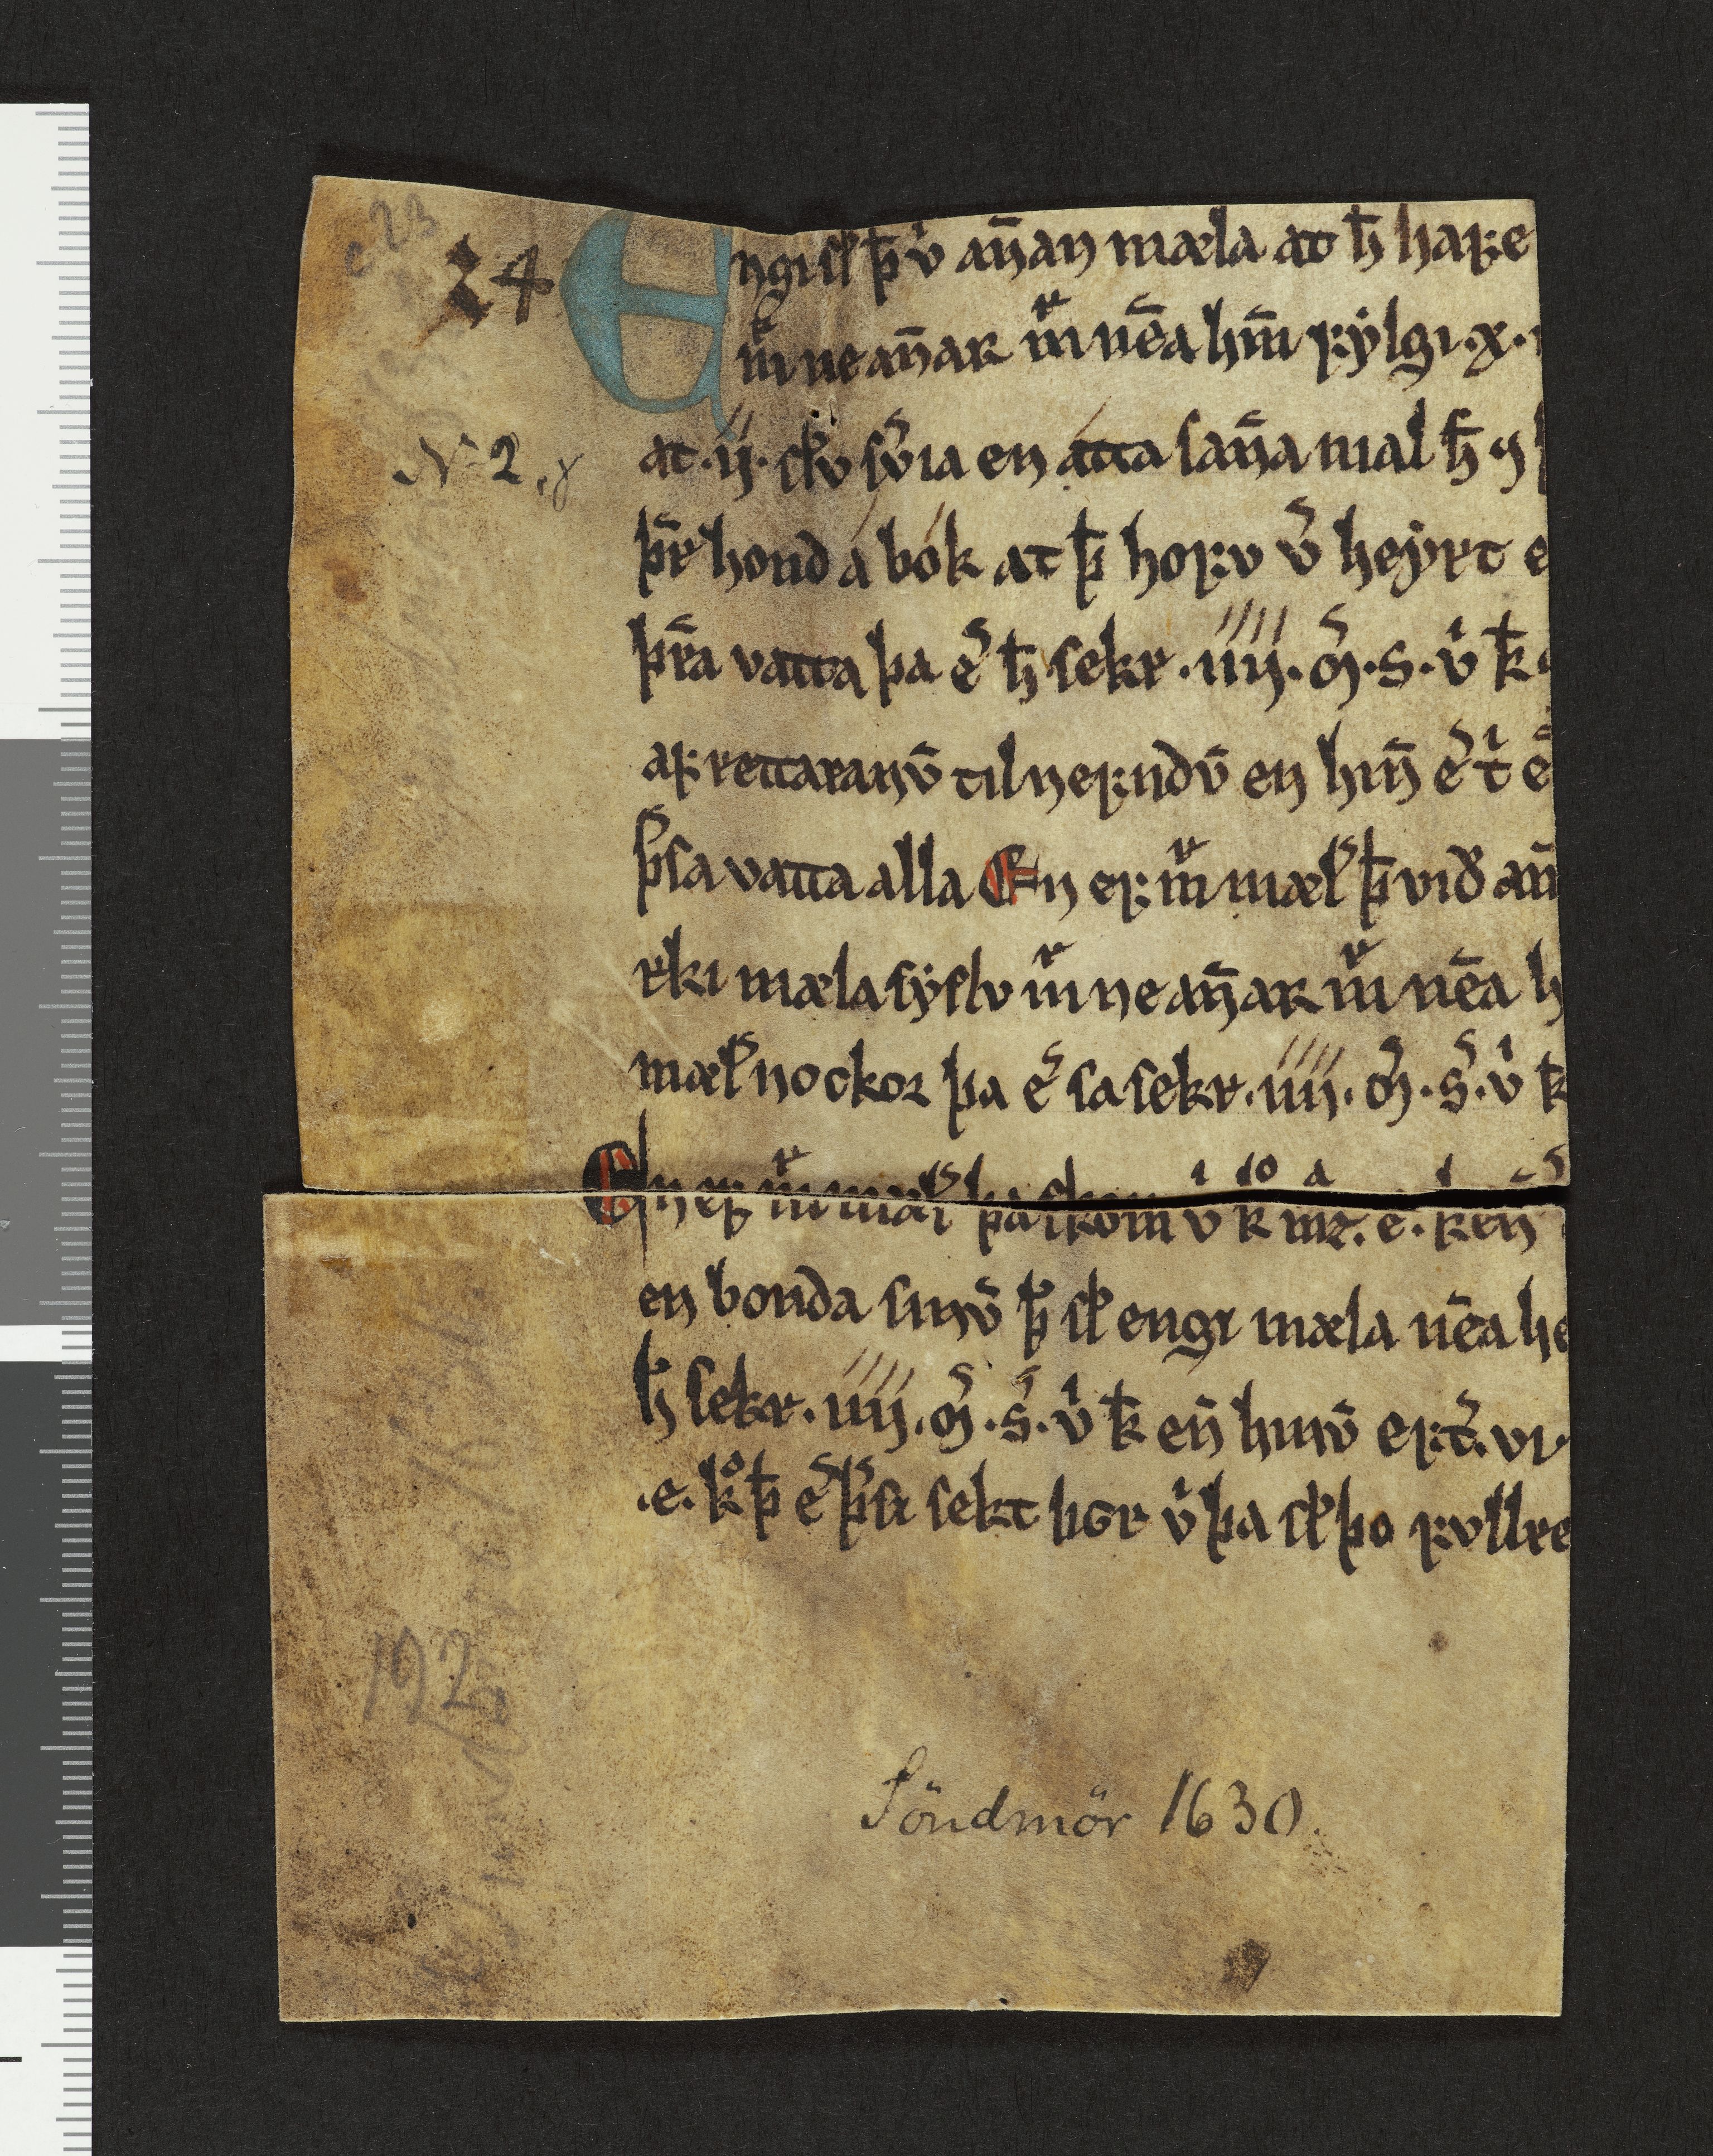 c 23
24
Engi ſl̄ þ̄ v̄ an̄an mæla at h̄ hafe
m̄ ne an̄ar m̄ nēa hm̄ fylgi .x.
No 2, 8
at .ij. ſlv ſv̄ia en átta ſan̄a mal h̄
þr̄ hond á bók at þ̄ hofv v̄ heyrt e
þr̄a vatta þa ē h̄ ſekr .iiij. m̄. s. v̄ k̄
af rettaranv̄ til nefndv̄ en hin̄ ē t̄ ē
þſ̄a vatta alla En ef m̄ mæl̄ þ̄ við an̄
rki mæla ſyſlv m̄ ne an̄ar m̄ nēa h
mæl̄ nockor þa ē ſa ſekr .iiij. m̄. s̄. v̄ k̄
En ef m̄ mæl̄ þa ſkom v̄ k̄ .e. ken̄
en bonda ſinv̄ þ̄ ſl̄ engi mæla nēa he
h̄ ſekr .iiij. m̄. s̄. v̄ k̄ en̄ hinv̄ er t̄. vi
.e. k̄ þ̄ ē þſ̄i ſekt v̄ þa ſl̄ þo fvllre
192
Söndmör 1630.